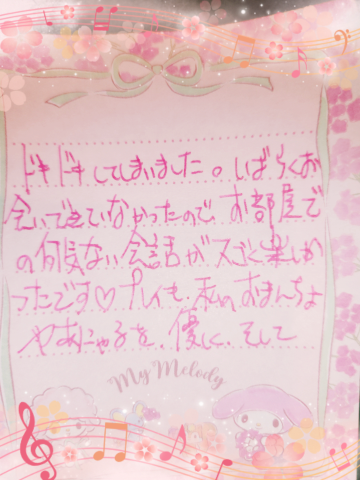 ドキドキしてしまいました。しばらくお
会いできていなかったので、お部屋で
の何気ない会話がスゴく楽しか
ったです♡プレイも、私のおまんちょ
やあにゃ子を、優しく、そして
My Melody